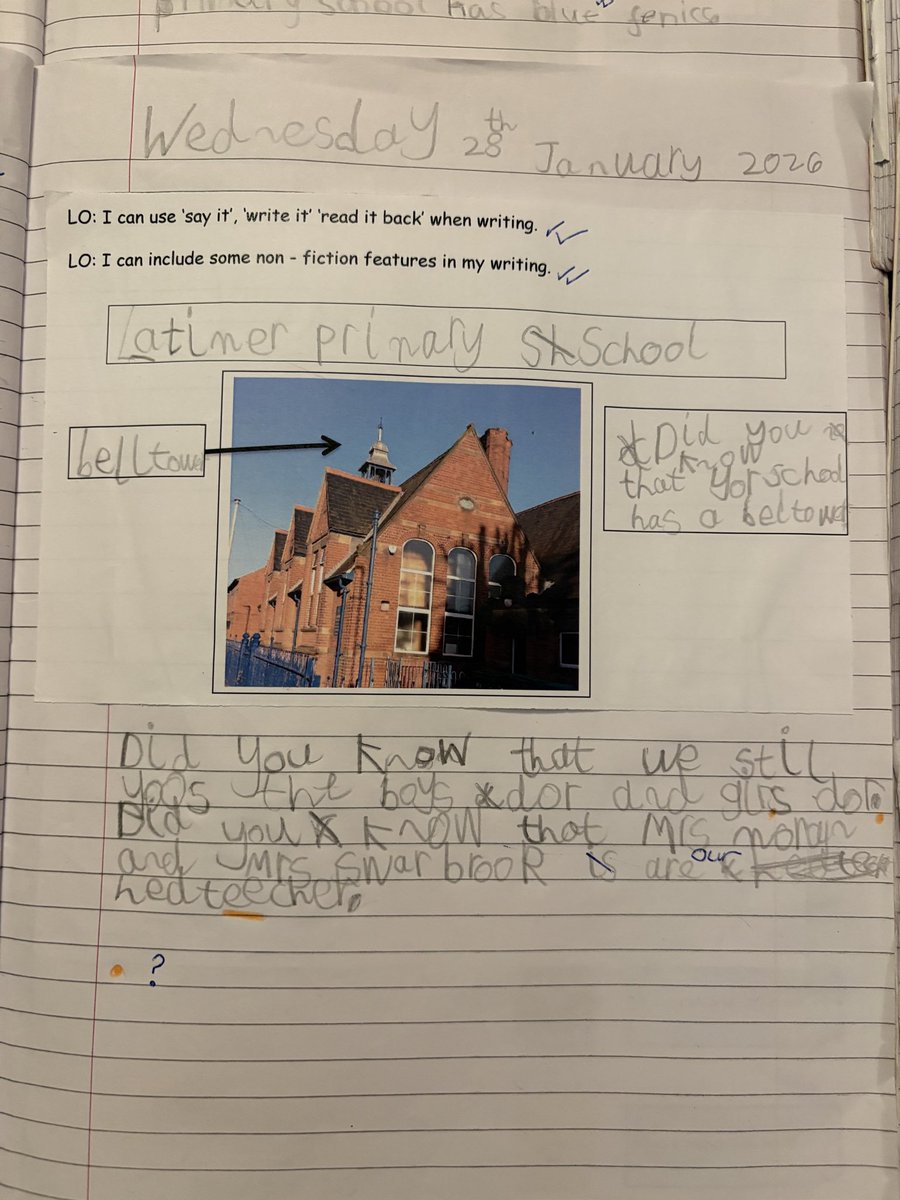 primary school has blue fenics
Wednesday 28th January 2026
LO: I can use 'say it', 'write it' 'read it back' when writing.
LO: I can include some non - fiction features in my writing.
Latimer primary School
belltower
Did you
know
that yor school
has a beltower
Did you know that we still
yoos the boys dor and glrs dor.
Did you know that Mrs moran
and Mrs Swarbrook are our
hedteecher.
?